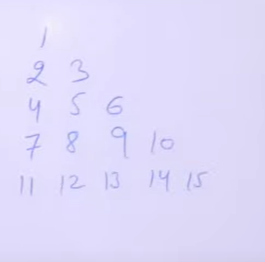 1
2 3
4 5 6
7 8 9 10
11 12 13 14 15